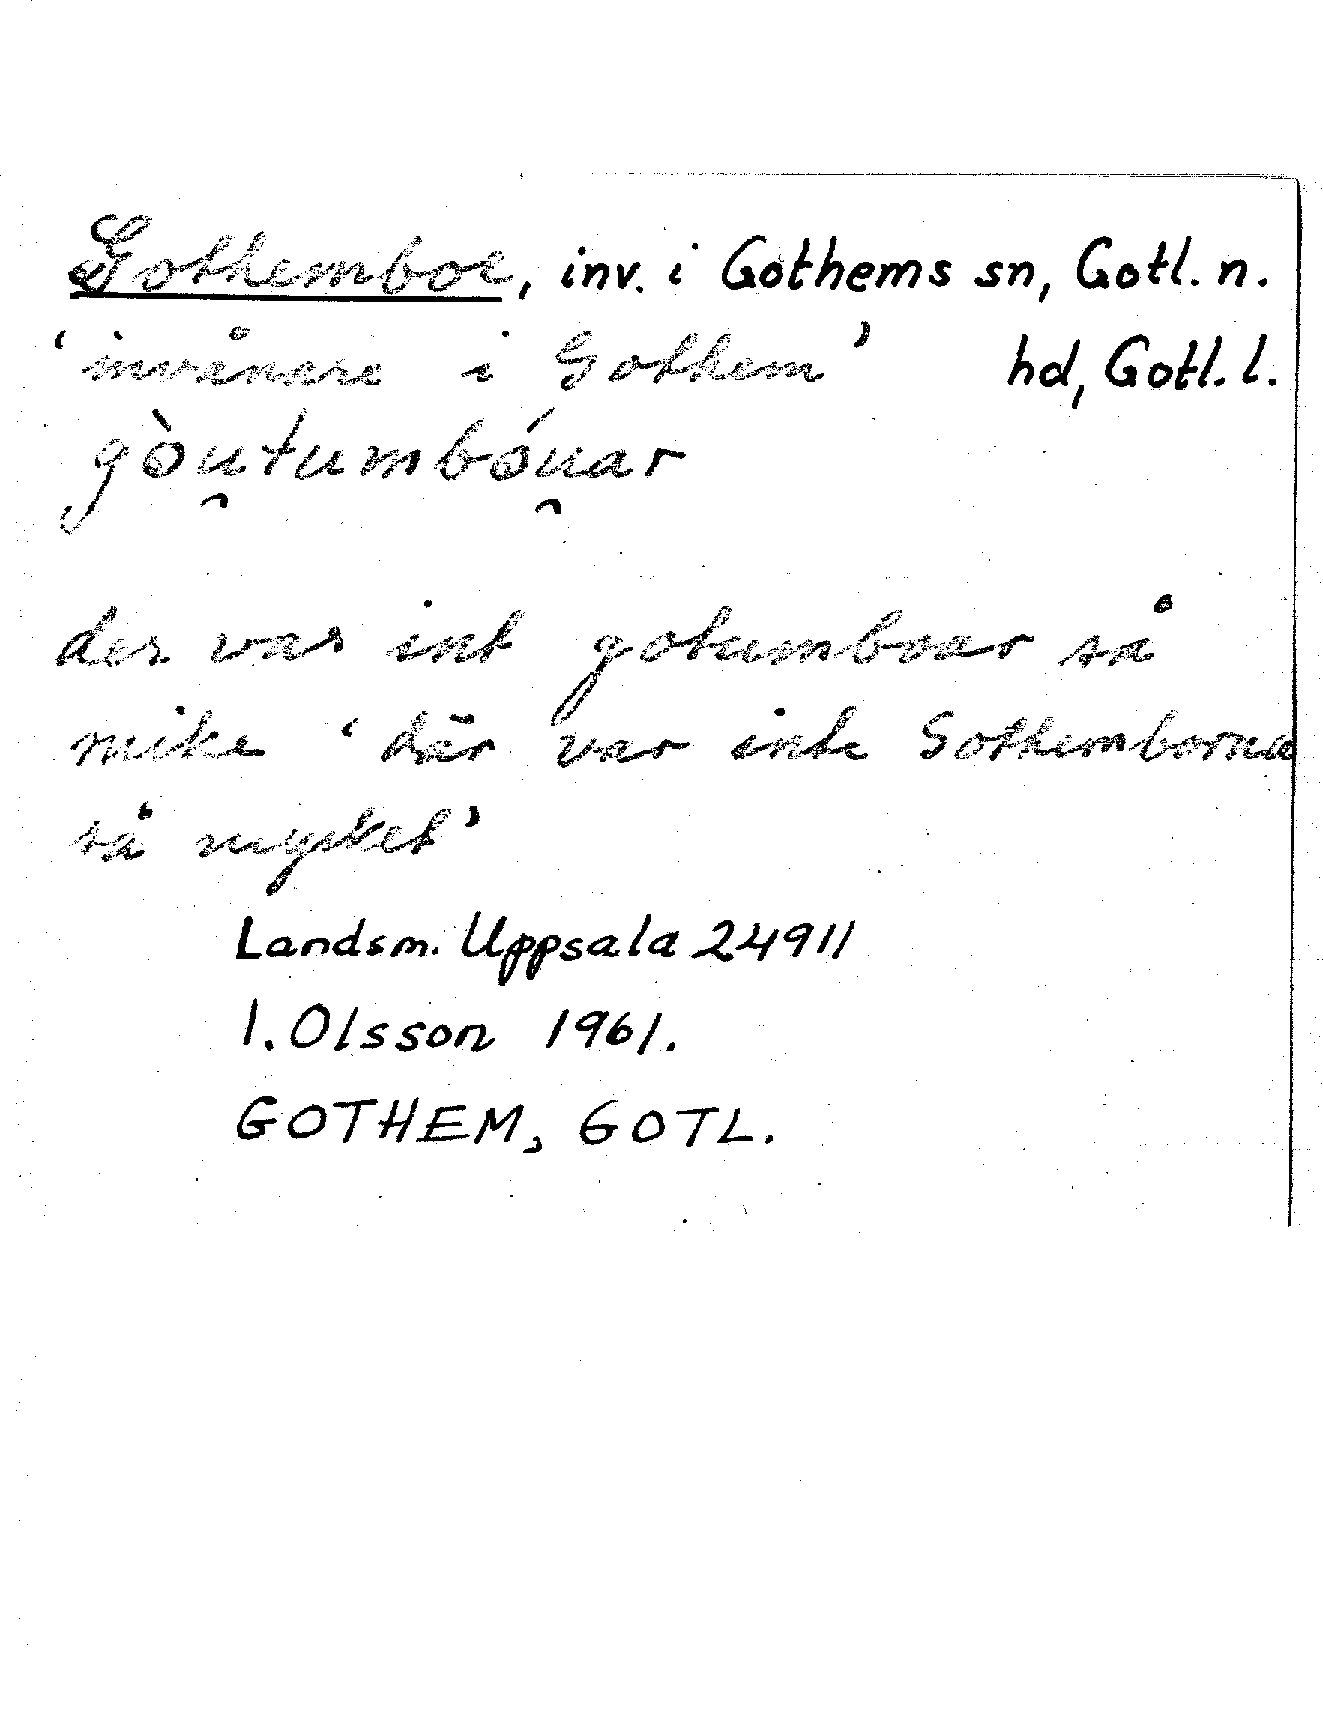 Gothemboe, inv. i Gothems sn, Gotl. n.
'invånare i Gothem' hd, Gotl. l.
gòu̯tumbóu̯ar
der var int gotumboar så
mike 'där var inte Gothemborna
så mycket'
Landsm. Uppsala 24911
I. Olsson 1961.
GOTHEM, GOTL.